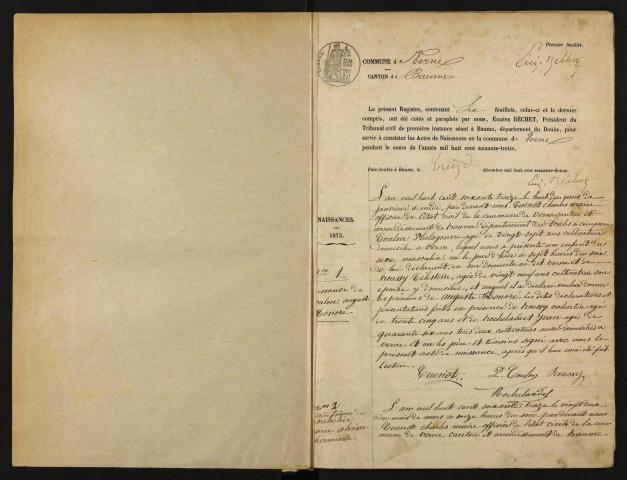 Premier feuillet.
COMMUNE d e Verne
CANTON d e Baume
Le présent Registre, contenant six feuillets, celui-ci et le dernier
compris, ont été cotés et paraphés par nous, EUGÈNE BÉCHET, Président du
Tribunal civil de première instance séant à Baume, département du Doubs, pour
servir à constater les Actes de Naissances en la commune de Verne
pendant le cours de l'année mil huit cent soixante-treize.
Fait double à Baume, le treize décembre mil huit cent soixante-douze.
NAISSANCES.
1873.
L'an mil huit cent soixante treize le huit du mois de
janvier à midi, par devant nous Cuenot charles maire
officier de l'état civil de la commune de verne canton et
arrondissement de baume département du doubs a comparu
Coulon Philogone agé de vingt sept ans cultivateur
domicilié a verne, lequel nous a présenté un enfant du
sexe masculin, né le jour d'hier a sept heures du soir
de lui déclarant, en son domicile audit verne et de
Célestine, agée de vingt neuf ans cultivatrice son
épouse y domiciliée, et auquel il a déclaré vouloir donner
les prénoms de auguste honoré. Les dites déclarations et
présentations faites en présence de valentin agé
de trente cinq ans et de Rochelandet Jean agé de
quarante six ans tous deux cultivateurs aussi domiciliés a
verne et ont les père et témoins signé avec nous le
présent acte de naissance, après qu'il leur en a été fait
lecture.
no 1
naissance de
coulon auguste
honoré
Cuenot. P. Coulon
Rochelandet
no 2
L'an mil huit cent soixante treize le vingt deux
du mois de mars a onze heures du soir par devant nous
Cuenot charles maire officier de l'état civil de la com-
mune de verne canton et arrondissement de baume